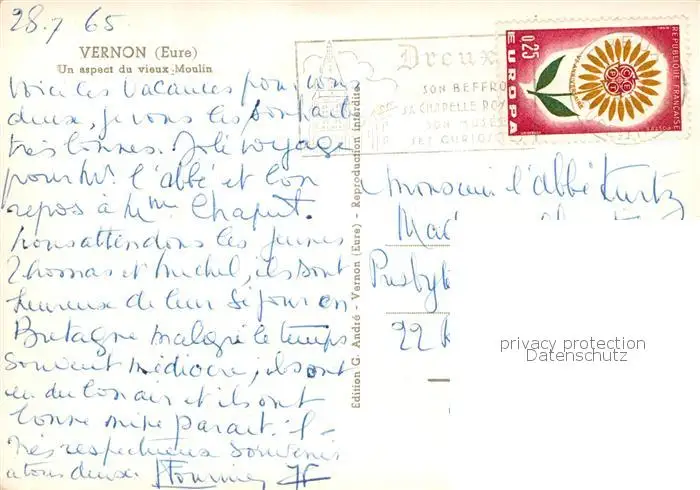 28.7 65
VERNON (Eure)
Un aspect du vieux Moulin
Voici les vacances pour vous
deux, je vous les souhaite
très bonnes. Joli voyage
pour Mr. l'abbé et bon
repos à Mme Chaput.
Nous attendons les jeunes
Thomas et Michel, ils sont
heureux de leur séjour en
Bretagne malgré le temps
souvent médiocre, ils ont
eu du bon air et ils ont
bonne mine parait-il -
Très respectueux souvenirs
à tous deux. Fournier
Edition G. André - Vernon (Eure) - Reproduction interdite.
Dreux
SON BEFFROI
SA CHAPELLE ROY
SON MUSÉE
SES CURIOS
0,25
EUROPA
REPUBLIQUE FRANÇAISE
POSTES
CEPT
Monsieur l'abbé Kurtz
Mad
Presbyt
22
privacy protection
Datenschutz